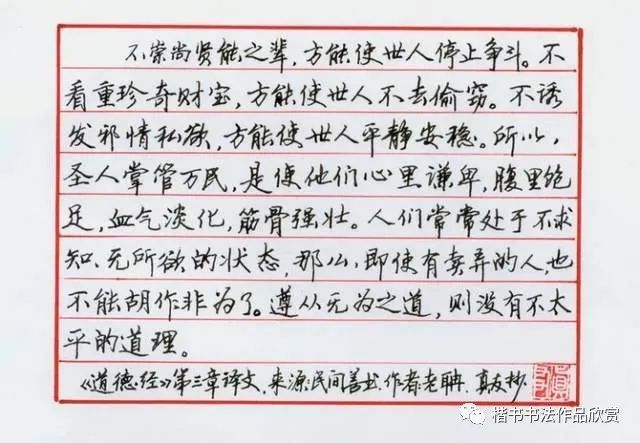 不崇尚贤能之辈，方能使世人停止争斗。不
看重珍奇财宝，方能使世人不去偷窃。不诱
发邪情私欲，方能使世人平静安稳。所以，
圣人掌管万民，是使他们心里谦卑，腹里饱
足，血气淡化，筋骨强壮。人们常常处于不求
知、无所欲的状态，那么，即使有卖弄的人，也
不能胡作非为了。遵从无为之道，则没有不太
平的道理。
《道德经》第三章译文，来源：民间善书，作者：老聃，真友抄
楷书书法作品欣赏